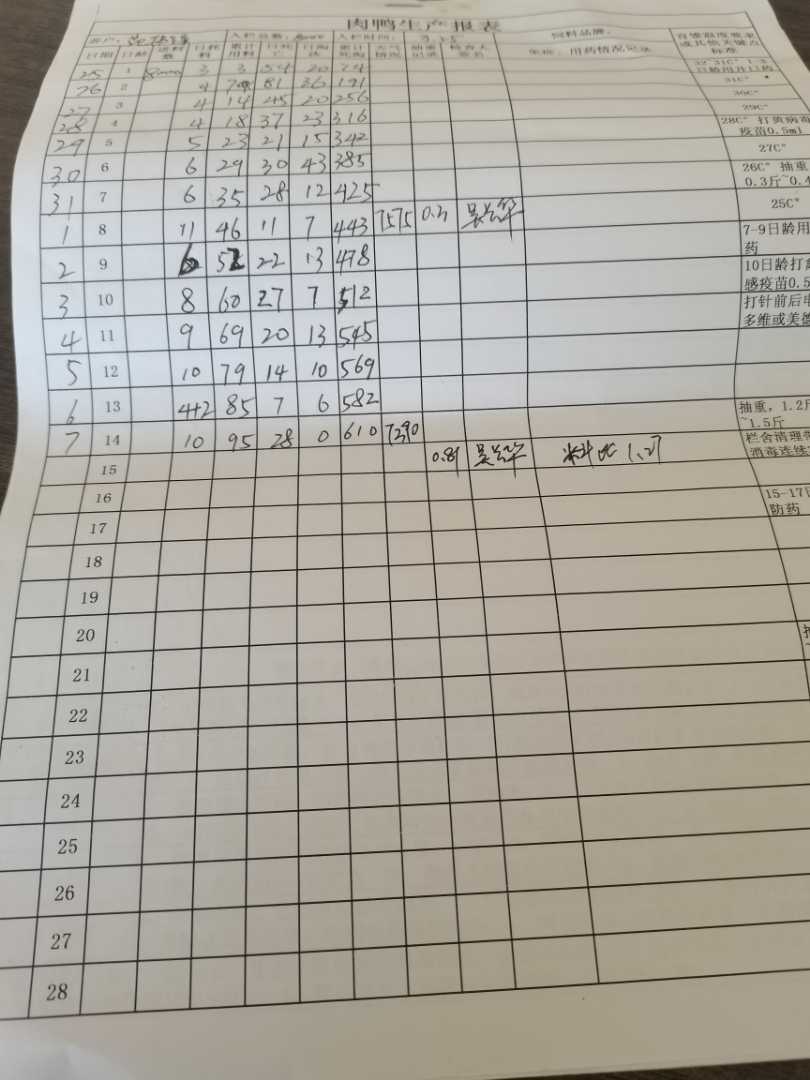 肉鸭生产报表
入栏总数: 入栏时间: 饲料品牌:
日期 日龄 进料数 日耗料 累计用料 日死亡 日淘汰 累计死淘 天气情况 抽重记录 检查人签名 免疫、用药情况记录 育雏温度要求或其他关键点标准
25 1 3 3 54 20 74 32~31C° 1-3日龄用开口药
26 2 4 7 81 36 191 31C°
27 3 4 14 45 20 256 30C°
28 4 4 18 37 23 316 29C°
29 5 5 23 21 15 342 28C° 打黄病毒疫苗0.5ml
27C°
30 6 6 29 30 43 385
31 7 6 35 28 12 425 26C° 抽重 0.3斤~0.4
25C°
1 8 11 46 11 7 443 7575 0.3 吴兰华
2 9 6 52 22 13 478 7-9日龄用药
3 10 8 60 27 7 512 10日龄打禽感疫苗0.5
4 11 9 69 20 13 545 打针前后电多维或美德
5 12 10 79 14 10 569
6 13 4+2 85 7 6 582
7 14 10 95 28 0 610 7390 抽重，1.2斤~1.5斤
15 0.81 吴兰华 料比 1.27 栏舍清理 消毒连续
16
17 15-17日 防药
18
19
20
21
22
23
24
25
26
27
28